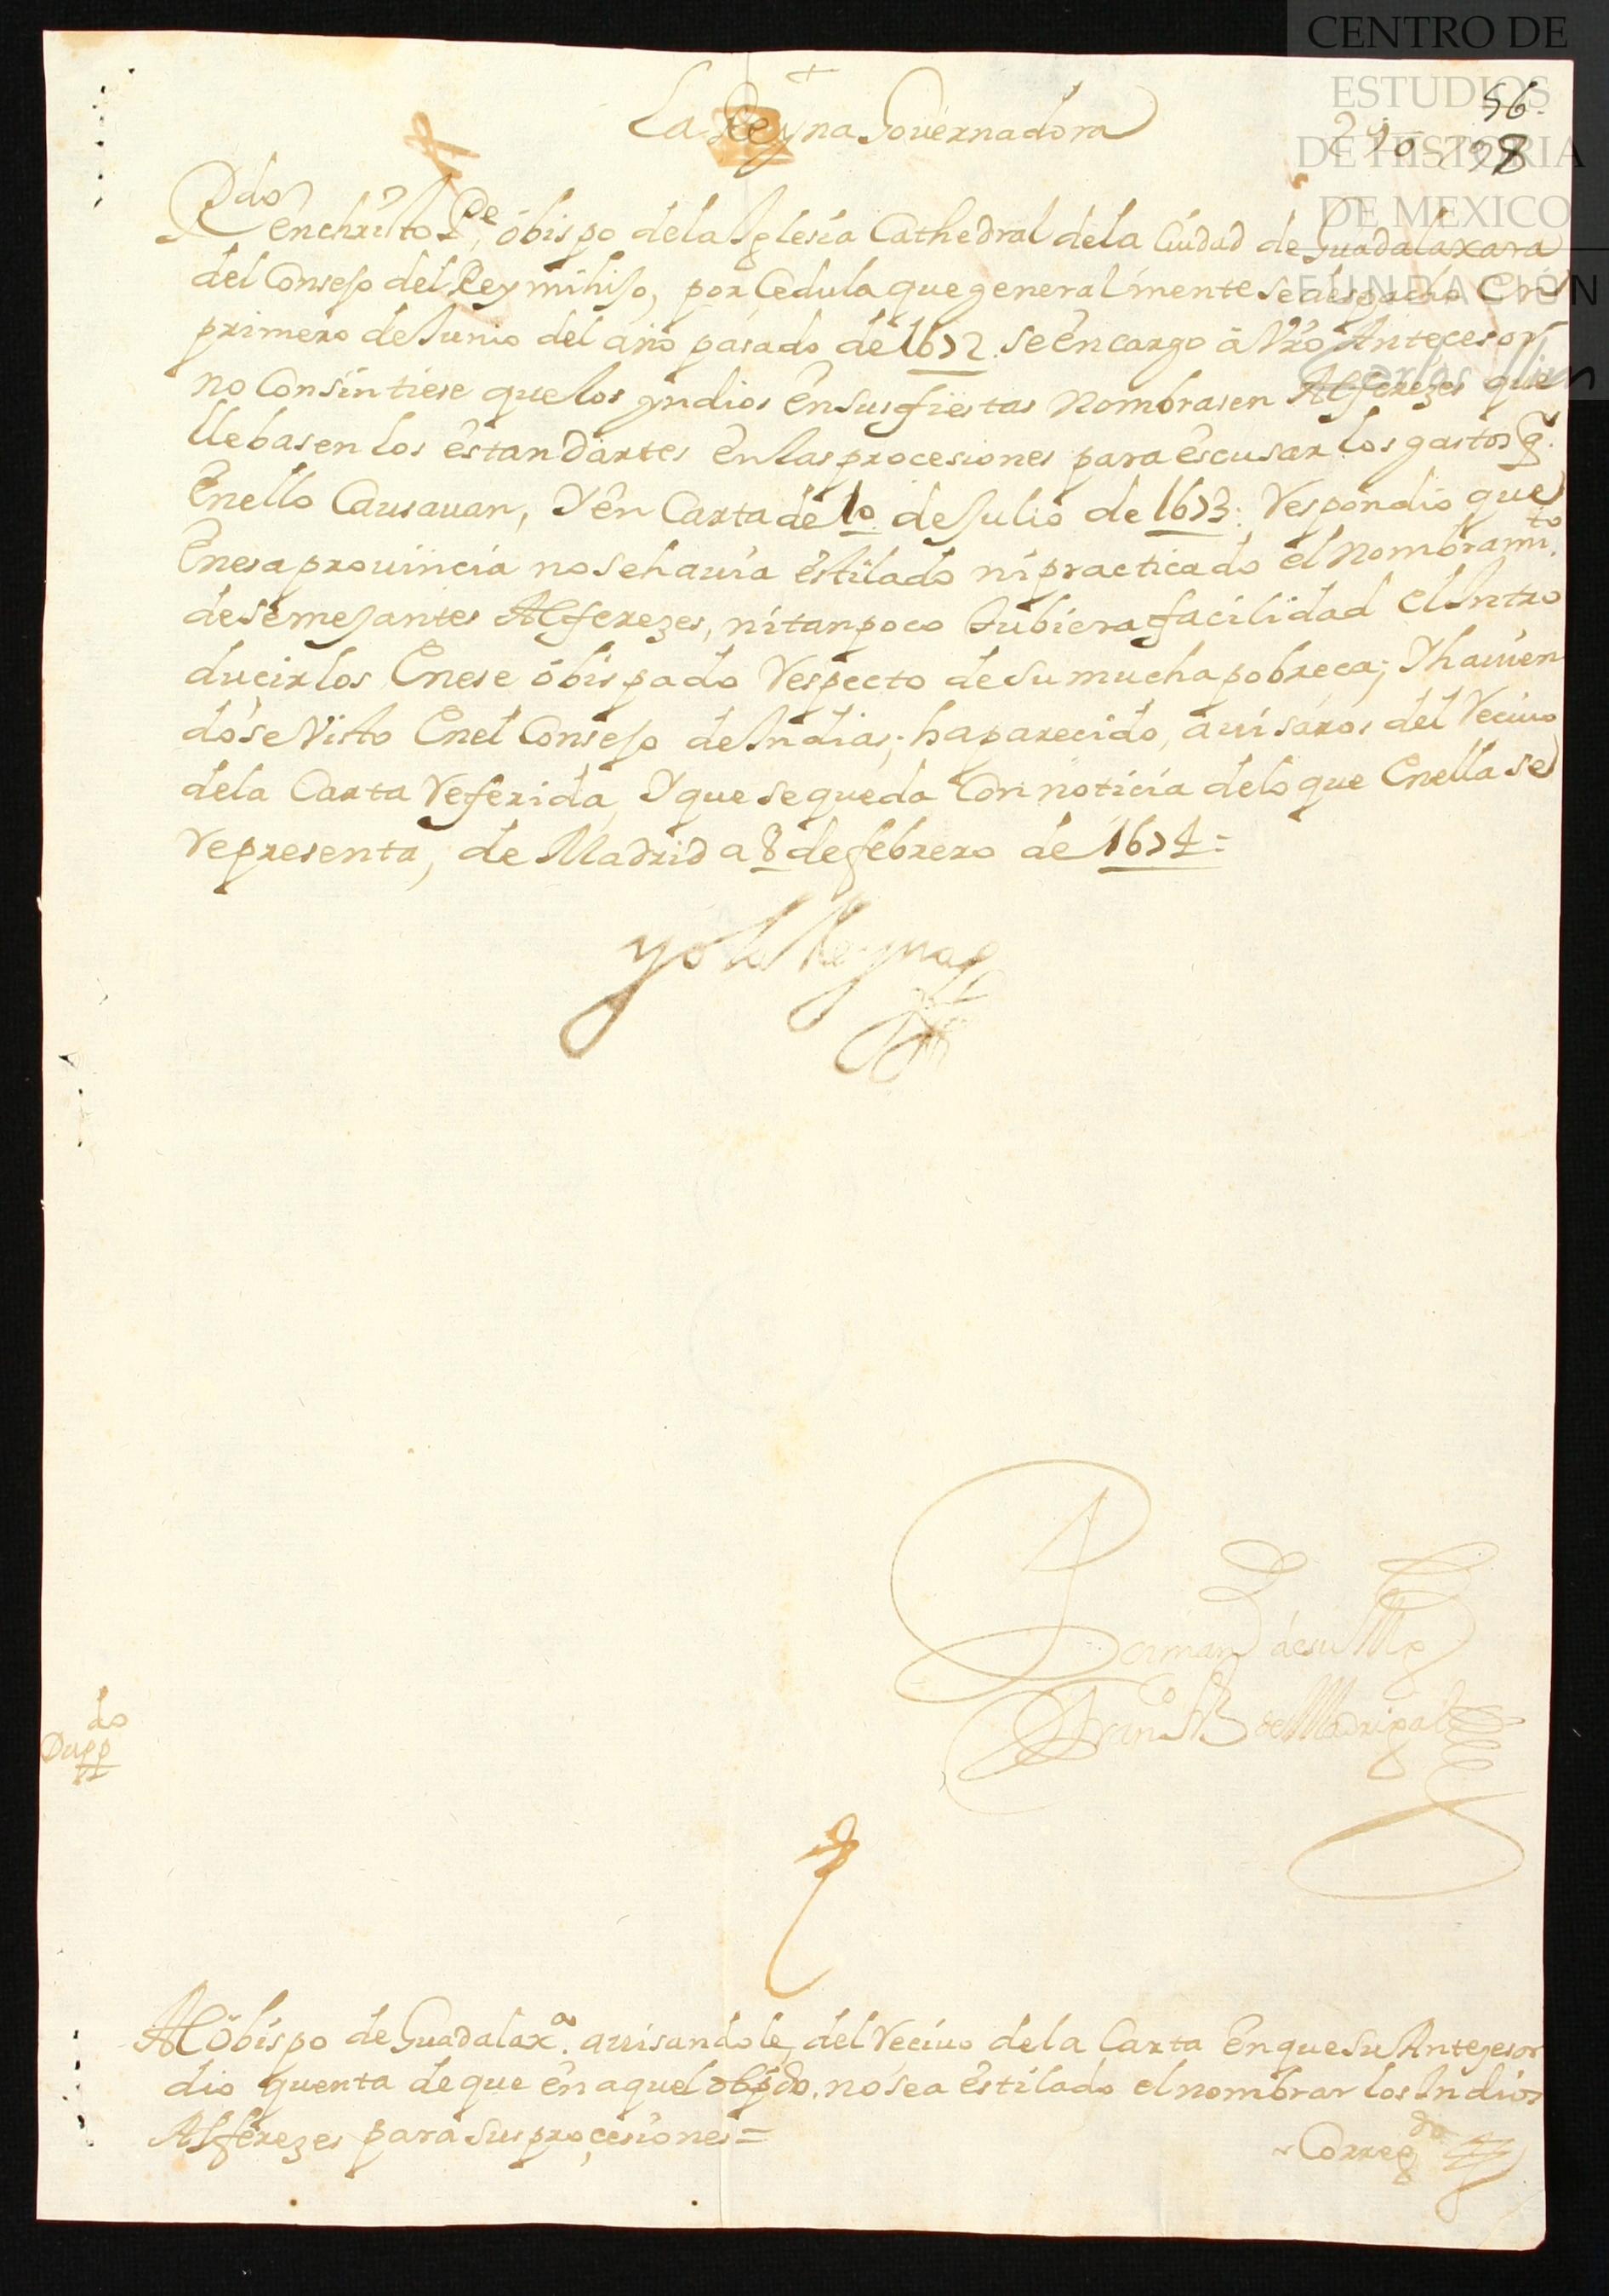 CENTRO DE
ESTUDIOS
DE HISTORIA
DE MEXICO
FUNDACIÓN
Carlos Slim
56.
98
La Reyna Gouernadora
Rdo en christo Pe, obispo de la Iglesia Cathedral de la Ciudad de Guadalaxara
del Consejo del Rey mi hijo, por Cedula que generalmente se despacho En
primero de Junio del año pasado de 1672. se encargo a Vro Antecesor
no Consintiese que los yndios en sus fiestas nombrasen Alferezes que
llebasen los estandartes en las procesiones para escusar los gastos q.
En ello Causauan, Y en Carta de 10 de Julio de 1673. respondio que
En esa prouincia no se hauia estilado ni practicado el nombramto.
de semejantes Alferezes, ni tanpoco tubiera facilidad el Intro
ducirlos En ese obispado respecto de su mucha pobreca; Y hauien
dose visto En el Consejo de Indias; ha parecido, auisaros del reciuo
de la Carta referida, Y que se queda Con noticia de lo que En ella se
representa, de Madrid a 8 de febrero de 1674=
yo la Reyna
Por mandº de su Mgd
Franco Frz de Madrigal
Duppdo
Al obispo de Guadalaxa. auisandole del reciuo de la Carta En que su Antezesor
dio quenta de que en aquel obpdo. no se a estilado el nombrar los Indios
Alferezes para sus proçesiones=
Corregdo